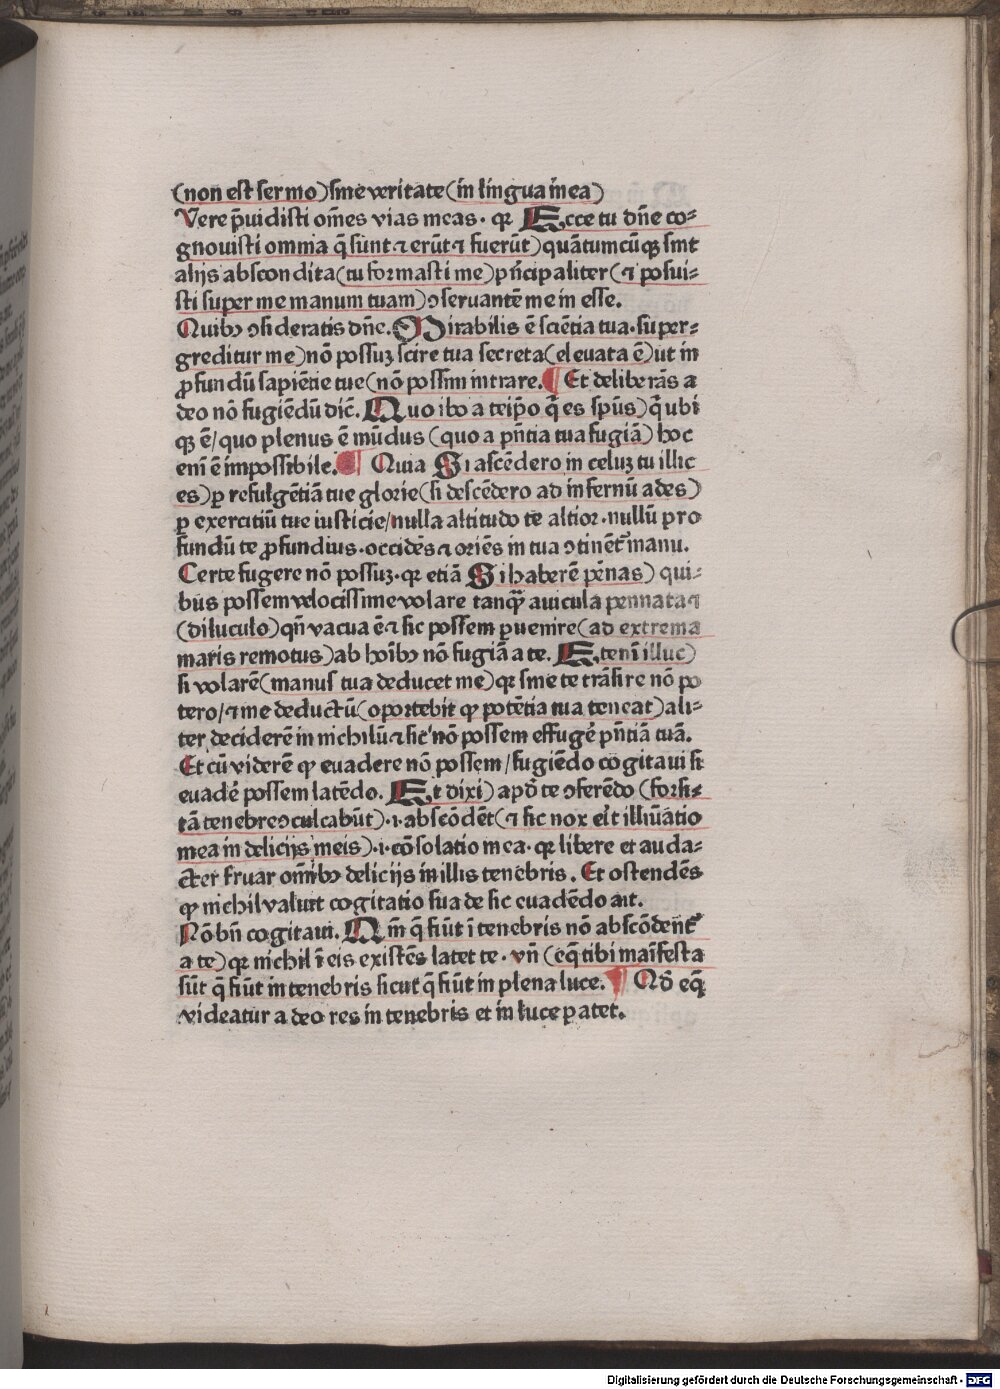 (non est sermo) sine veritate (in lingua mea)
Vere p̄uidisti om̄es vias meas· qꝛ Ecce tu dn̄e co⸗
gnouisti omnia q̄ sunt ⁊ erūt ⁊ fuerūt) quātumcūqꝫ sint
alijs abscondita (tu formasti me) pn̄cipaliter (⁊ posui⸗
sti super me manum tuam) ↄseruantē me in esse.
Quibꝰ ↄsideratis dn̄e. Mirabilis ē sciētia tua· super⸗
greditur me) nō possuꝫ scire tua secreta (eleuata ē) ut in
ꝓfundū sapiētie tue (nō possim intrare. ¶ Et deliberās a
deo nō fugiēdū dic̄. Quo ibo a te ip̄o q̄ es spūs) q̄ ubi
qꝫ ē / quo plenus ē mūdus (quo a pn̄tia tua fugiā) hoc
eni ē impossibile. ¶ Quia Si ascēdero in celuꝫ tu illic
es) ꝑ refulgētiā tue glorie (si descēdero ad infernū ades)
ꝑ exercitiū tue iusticie / nulla altitudo te altior· nullū pro
fundū te ꝓfundius· occidēs ⁊ oriēs in tua ↄtinet᷑ manu.
Certe fugere nō possuꝫ· qꝛ etiā Si haberē pēnas) qui⸗
bus possem velocissime volare tanqꝫ̄ auicula pennata ⁊
(diluculo) qn̄ vacua ē ⁊ sic possem ꝑuenire (ad extrema
maris remotus) ab hoībꝰ nō fugiā a te. Etenī illuc)
si volarē (manus tua deducet me) qꝛ sine te trāsire nō po
tero / ⁊ me deductū (oportebit ꝙ potētia tua teneat) ali⸗
ter deciderē in nichilū ⁊ sic nō possem effugē pn̄tiā tuā.
Et cū viderē ꝙ euadere nō possem / fugiēdo cogitaui si
euadē possem latēdo. Et dixi) apd̄ te ↄferēdo (forsi⸗
tā tenebre ↄculcabūt) ·i· abscōdēt (⁊ sic nox er̄it illūatio
mea in delicijs meis) ·i· cōsolatio mea· qꝛ libere et auda⸗
cter fruar om̄ibꝰ delicijs in illis tenebris. Et ostendēs
ꝙ nichil valuit cogitatio sua de sic euadēdo ait.
Nō bn̄ cogitaui. Nam̄ q̄ fiūt ī tenebris nō abscōdent᷑
a te) qꝛ nichil ī eis existēs latet te· vn̄ (eq̄ tibi manīfesta
sūt q̄ fiūt in tenebris sicut q̄ fiūt in plena luce. ¶ Qd̄ eq̄
videatur a deo res in tenebris et in luce patet.
Digitalisierung gefördert durch die Deutsche Forschungsgemeinschaft - DFG